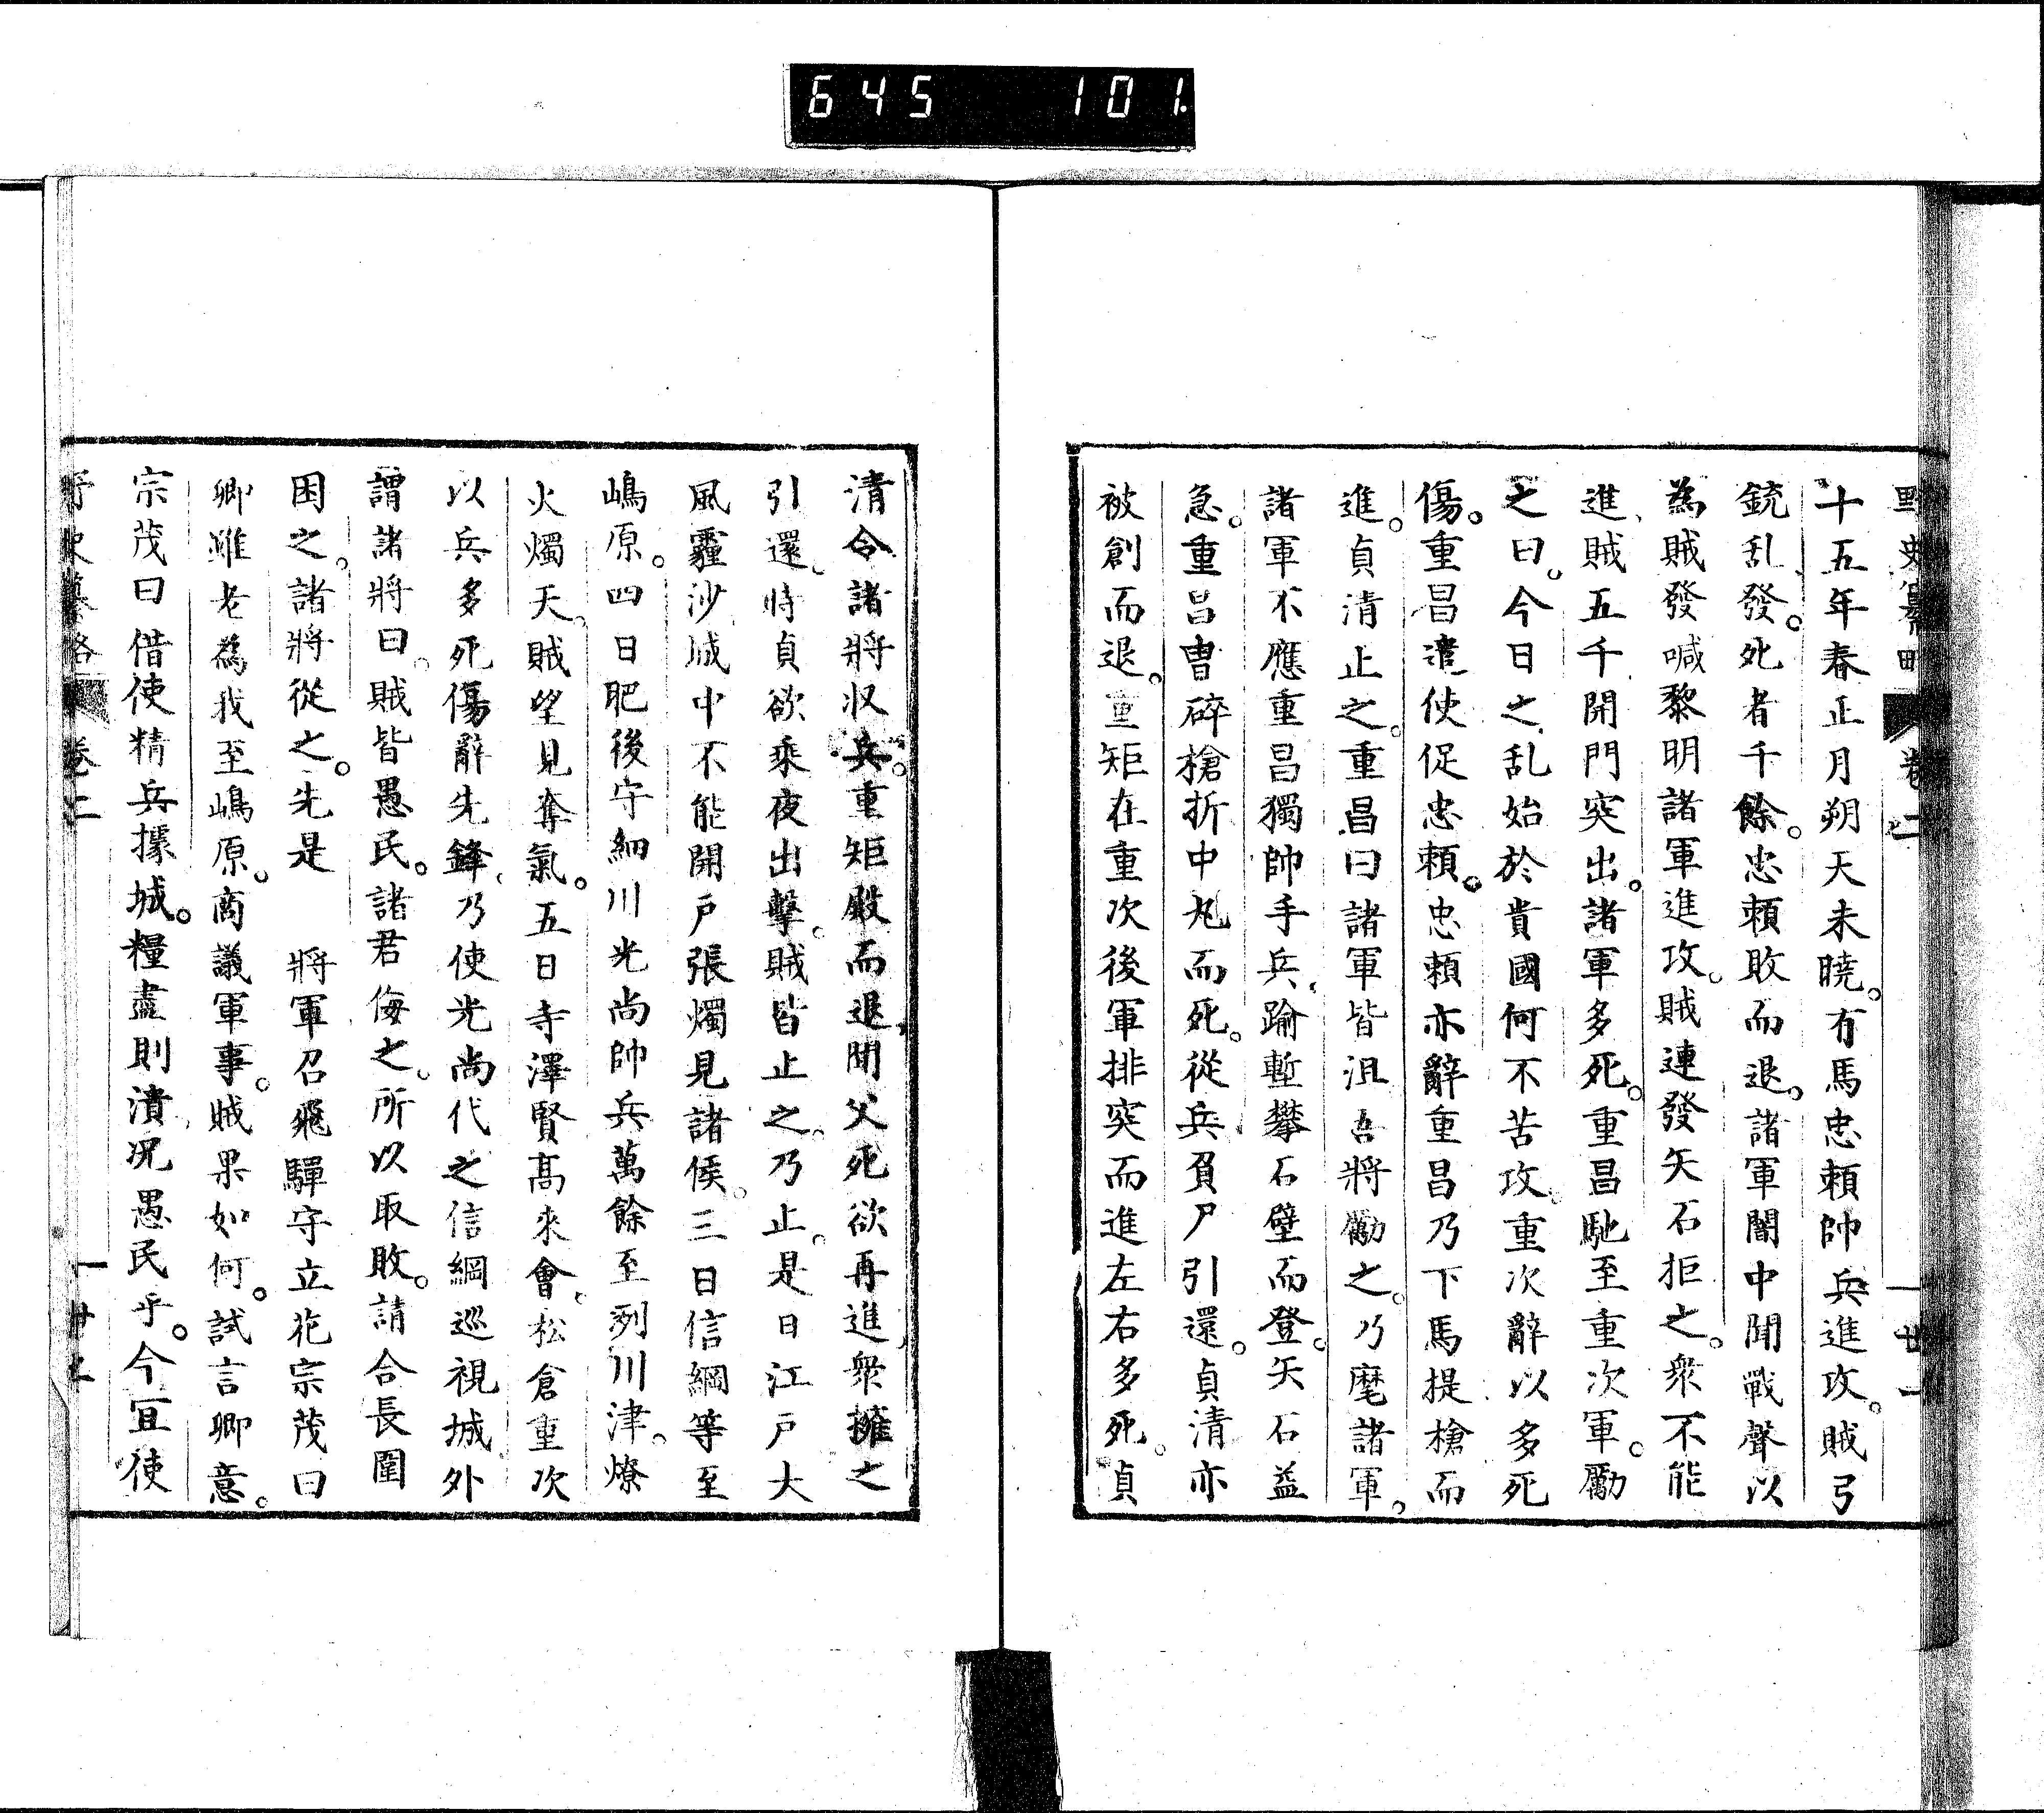 645 101
野史纂略 卷二 廿一
十五年春正月朔天未曉。有馬忠頼帥兵進攻。賊弓
銃乱發。死者千餘。忠頼敗而退。諸軍闇中聞戰聲以
為賊發喊黎明諸軍進攻。賊連發矢石拒之。衆不能
進、賊五千開門突出。諸軍多死。重昌馳至重次軍。勵
之曰。今日之乱始於貴國何不苦攻。重次辭以多死
傷。重昌遣使促忠頼。忠頼亦辭重昌乃下馬提槍而
進。貞清止之。重昌曰諸軍皆沮吾將勵之。乃麾諸軍。
諸軍不應重昌獨帥手兵、踰塹攀石壁而登。矢石益
急。重昌冑碎槍折中丸而死。從兵負尸引還。貞清亦
被創而退。重矩在重次後軍排突而進左右多死。貞
清令諸將収兵。重矩殿而退、聞父死欲再進、衆擁之
引還。時貞欲乘夜出擊。賊皆止之。乃止。是日江戸大
風霾沙城中不能開戸張燭見諸侯。三日信綱等至
嶋原。四日肥後守細川光尚帥兵萬餘至洌川津。燎
火燭天。賊望見奪氣。五日寺澤賢髙來會。松倉重次
以兵多死傷辭先鋒。乃使光尚代之信綱巡視城外
謂諸將曰。賊皆愚民。諸君侮之。所以取敗。請合長圍
困之。諸將從之。先是 將軍召飛驒守立花宗茂曰
卿雖老為我至嶋原。商議軍事。賊果如何。試言卿意。
宗茂曰借使精兵據城。糧盡則潰况愚民乎。今宜使
野史纂略 卷二